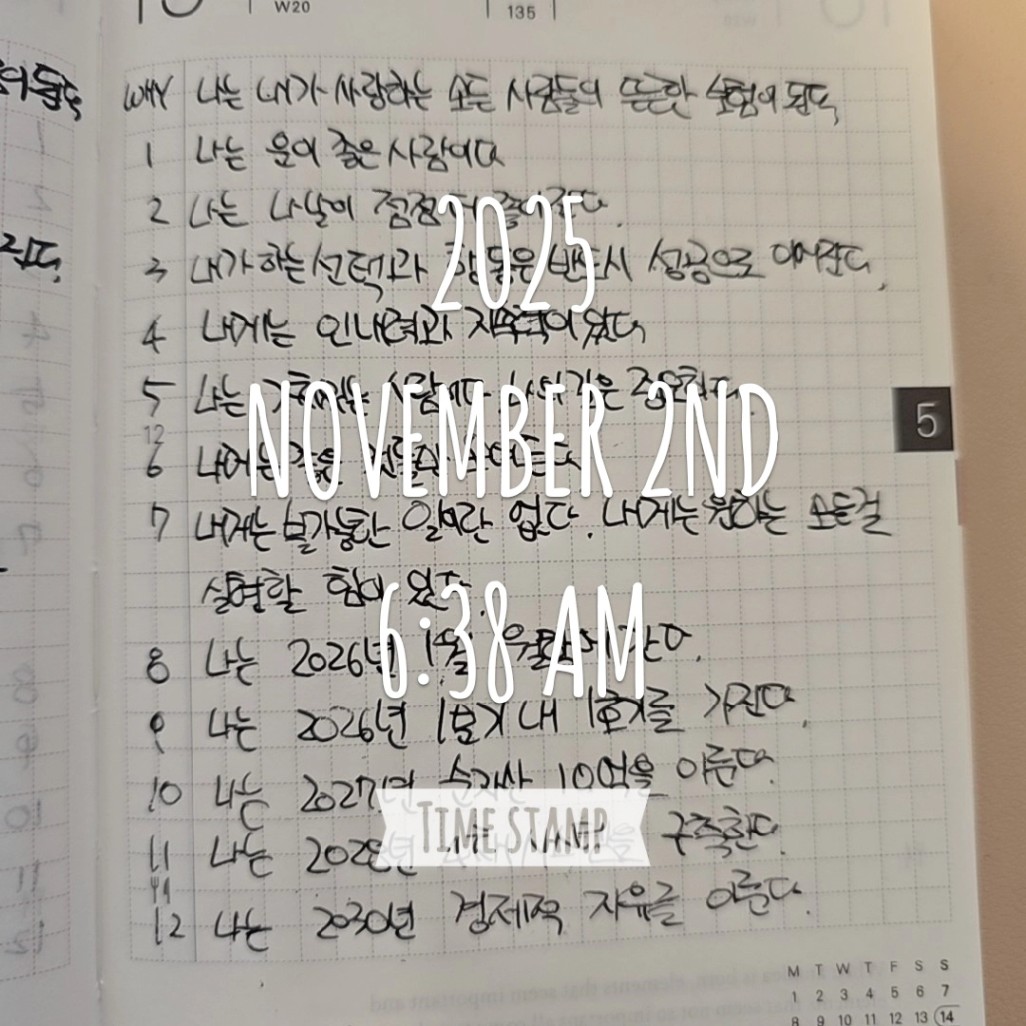 W20
135
WHY 나는 내가 사랑하는 모든 사람들의 든든한 보험이 된다.
1 나는 운이 좋은 사람이다
2 나는 나날이 점점 더 좋아진다.
3 내가 하는 선택과 행동은 반드시 성공으로 이어진다.
4 내게는 인내력과 지속력이 있다
5 나는 사람이다. 중요하다.
12
6
7 내게는 불가능한 일이란 없다. 내게는 원하는 모든걸
실현할 힘이 있다.
8 나는 2026년 1월 간다.
9 나는 2026년 1분기 내 1호기를 가진다.
10 나는 2027년 순자산 10억을 이룬다.
11 나는 2028년 구축한다.
12 나는 2030년 경제적 자유를 이룬다.
2025
NOVEMBER 2ND
6:38 AM
TIME STAMP
5
M T W T F S S
1 2 3 4 5 6 7
8 9 10 11 12 13 14